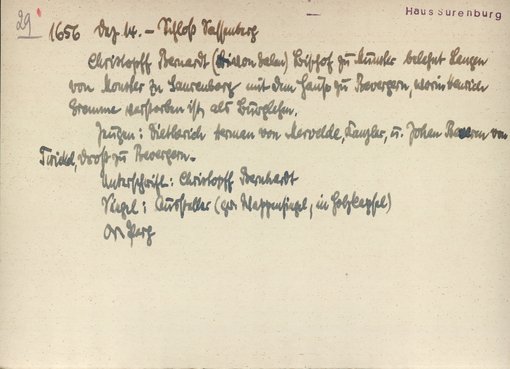 29
Haus Surenburg
1656 Dez 14. - Schloß Sassenberg
Christopff Bernardt (von Galen) Bischof zu Münster belehnt
von Monster zu Surenborg mit dem Hause zu Bevergern, worin Henrich
Bromme verstorben ist, als Burglehen.
Zeugen: Dietherich Herman von Mervelde, Kanzler, u. Johan von
Twickel, Drost zu Bevergern.
Unterschrift: Christopff Bernhardt
Siegel: Aussteller (gr. Wappensiegel, in Holzkapsel)
Or. Perg